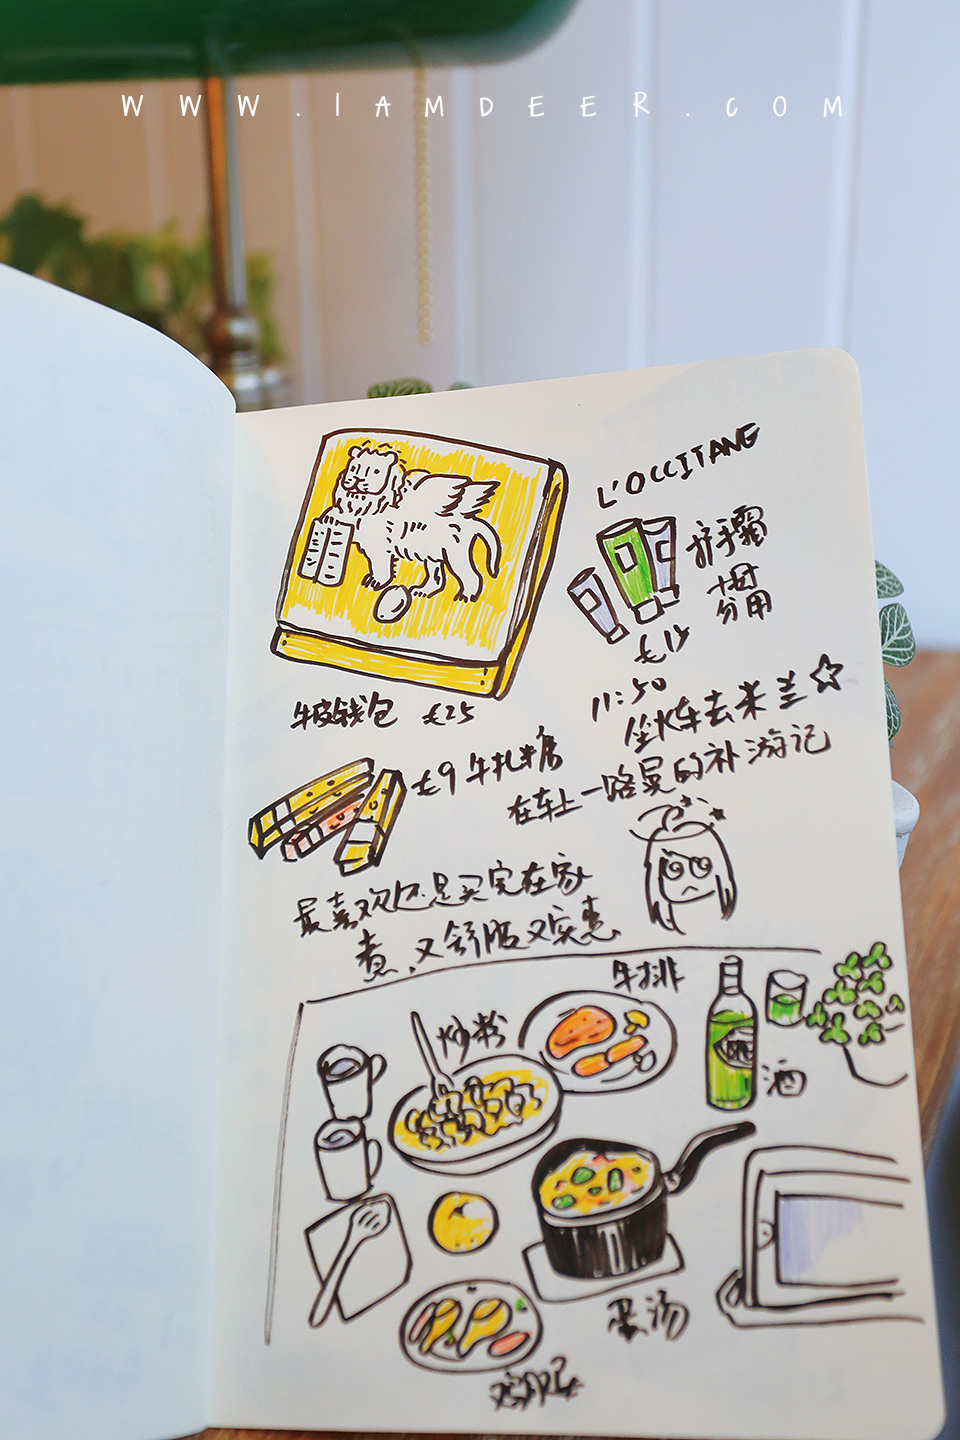 WWW.IAMDEER.COM
L'OCCITANE
护手霜
€15
牛皮钱包 €25
11:50
坐火车去米兰☆
在车上一路晕的补游记
€9 牛扎糖
最喜欢还是买完在家
煮,又舒服又实惠
牛排
炒粉
酒
蛋汤